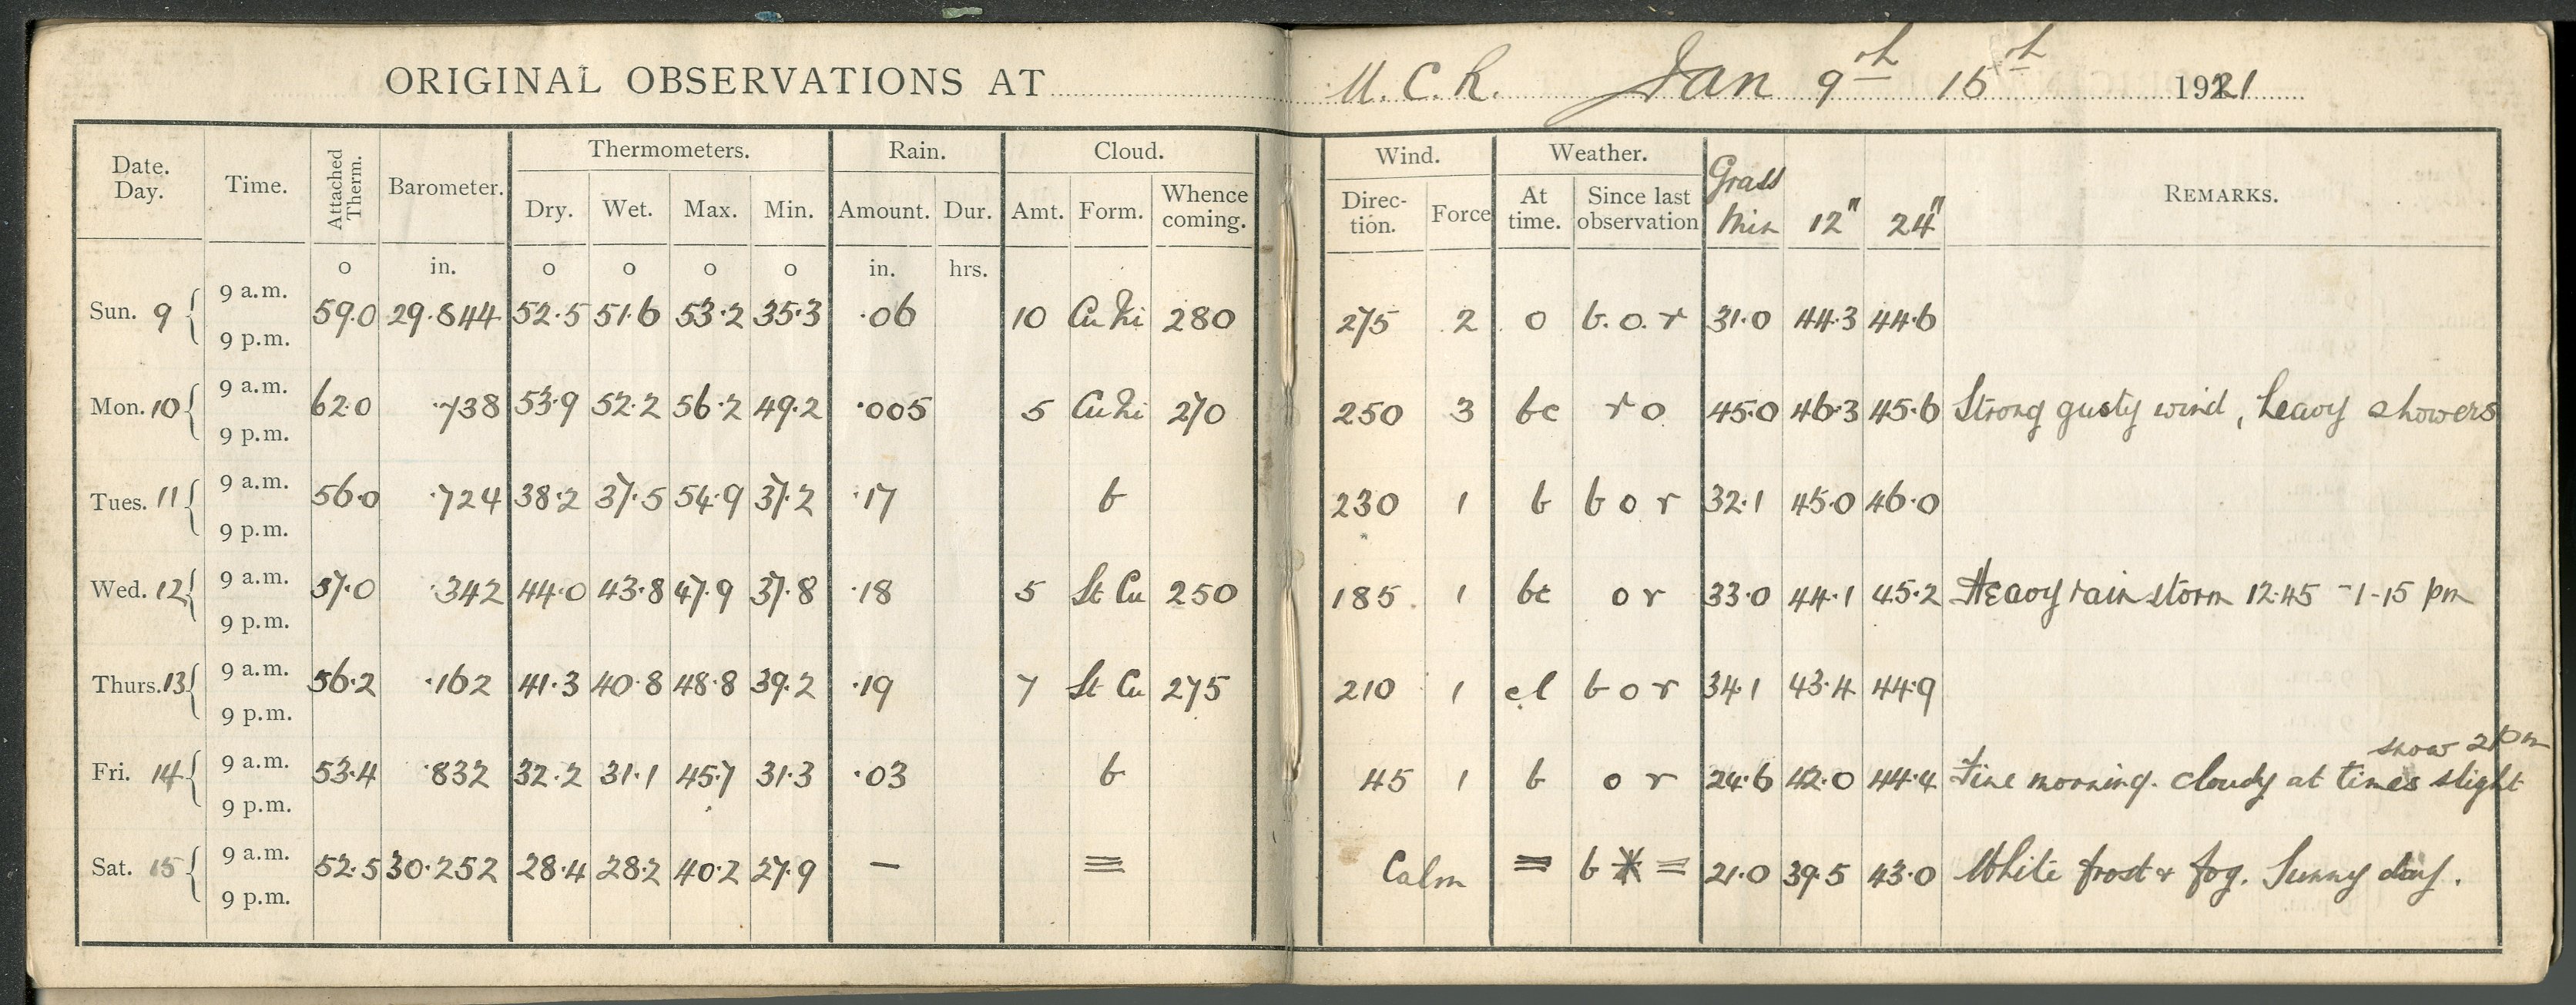 ORIGINAL OBSERVATIONS AT M.C.R. Jan 9th 15th 1921
Date. Day. Time. Attached Therm. Barometer. Thermometers. Rain. Cloud. Wind. Weather. Grass Min 12" 24" REMARKS.
Dry. Wet. Max. Min. Amount. Dur. Amt. Form. Whence coming. Direc- tion. Force At time. Since last observation
o in. o o o o in. hrs.
Sun. 9 9 a.m. 9 p.m. 59.0 29.844 52.5 51.6 53.2 35.3 .06 10 Cu Ni 280 275 2 o b.o.r 31.0 44.3 44.6
Mon. 10 9 a.m. 9 p.m. 62.0 .738 53.9 52.2 56.2 49.2 .005 5 Cu Ni 270 250 3 bc r o 45.0 46.3 45.6 Strong gusty wind, heavy showers
Tues. 11 9 a.m. 9 p.m. 56.0 .724 38.2 37.5 54.9 37.2 .17 b 230 1 b b o r 32.1 45.0 46.0
Wed. 12 9 a.m. 9 p.m. 57.0 .342 44.0 43.8 47.9 37.8 .18 5 St Cu 250 185 1 bc o r 33.0 44.1 45.2 Heavy rain storm 12.45 - 1-15 pm
Thurs. 13 9 a.m. 9 p.m. 56.2 .162 41.3 40.8 48.8 39.2 .19 7 St Cu 275 210 1 b o r 34.1 43.4 44.9
Fri. 14 9 a.m. 9 p.m. 53.4 .832 32.2 31.1 45.7 31.3 .03 b 45 1 b o r 24.6 42.0 44.4 Fine morning. cloudy at times slight snow 2pm
Sat. 15 9 a.m. 9 p.m. 52.5 30.252 28.4 28.2 40.2 27.9 — ≡ Calm = b * = 21.0 39.5 43.0 White frost & fog. Sunny day.